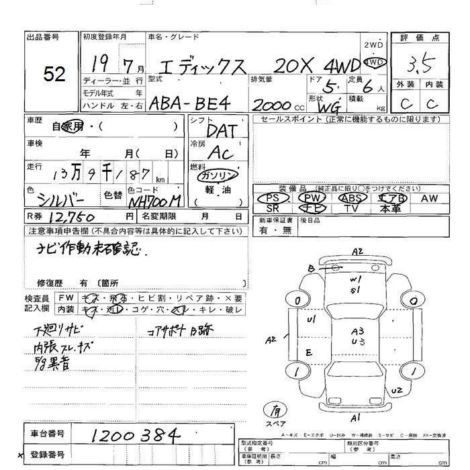 出品番号
52
初度登録年月
19年7月
車名・グレード
エディックス 20X 4WD
2WD
4WD
評価点
3.5
ディーラー・並行
モデル年式 年
ハンドル 左・右
型式
ABA-BE4
排気量
2000 cc
ドア
5
形状
WG
定員
6 人
積載
kg
外装 内装
C C
車歴
自家用・( )
シフト
DAT
セールスポイント (正常に機能するものに限ります)
車検
年 月( 日)
冷房
AC
走行
13万9千187 km
燃料
ガソリン
軽・油
( )
色
シルバー
色替
色コード
NH700M
装備品 (純正品に限り○をつけてください)
PS PW ABS エアB AW
SR ナビ TV 本革
R券 12,750 円
名変期限 月 日
新車保証書
有・無
後日品
注意事項申告欄 (不具合内容等は具体的に記入して下さい)
ナビ作動未確認
修復歴 有 〔箇所
検査員
記入欄
FW キズ・飛石・ヒビ割・リペア跡・×要
内装 キズ・汚レ・コゲ・穴・スレ・キレ・破レ
下廻りサビ
内張スレ、キズ
コアサポートB跡
A2
B
W1
S1
U1
A2
A3
U3
E
U2
A1
スペア
車台番号
1200384
登録番号
型式指定番号
(参考)
類別区分番号
(参考)
長さ cm
幅 cm
高さ cm